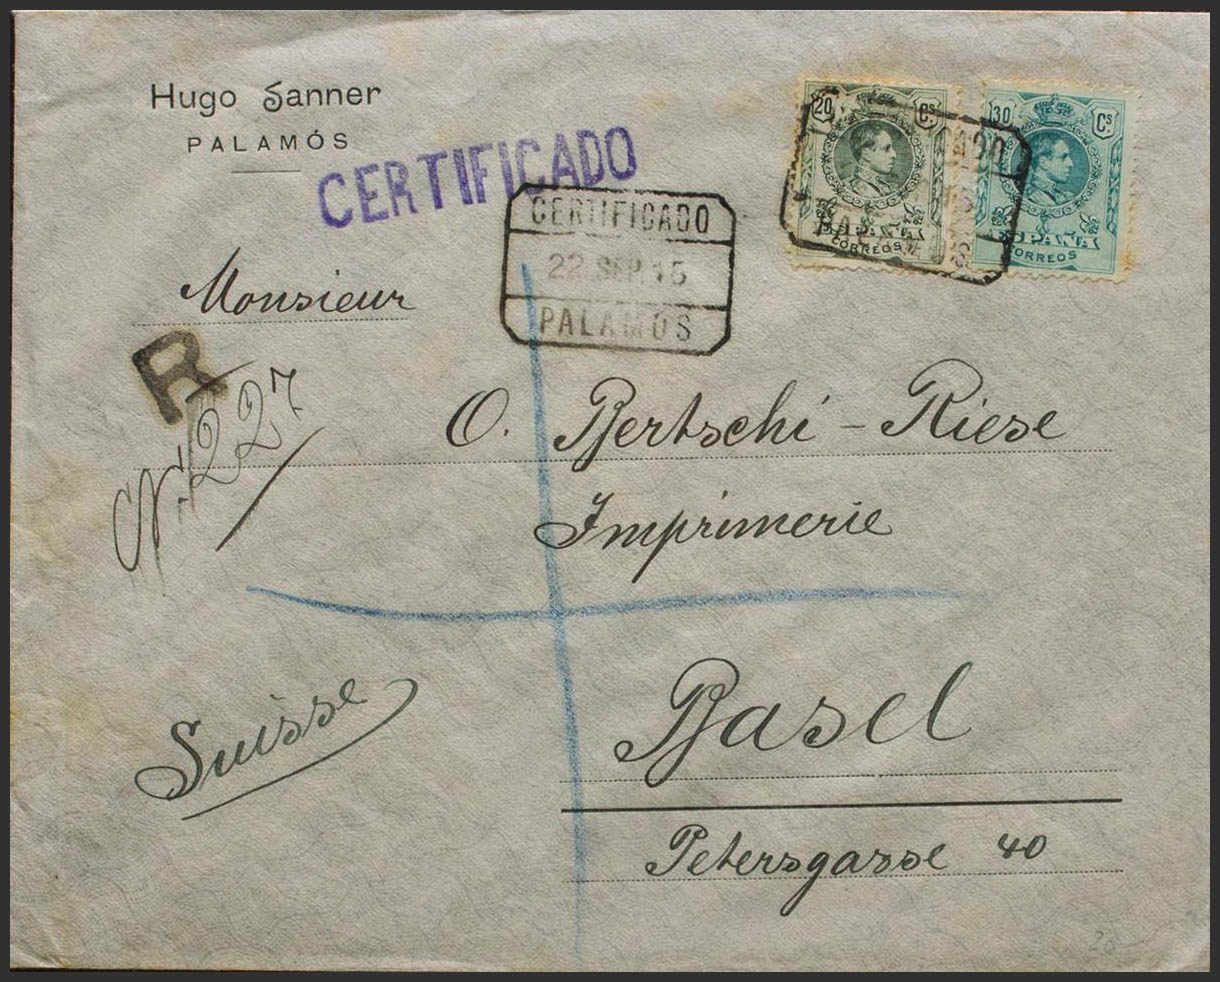 Hugo Sanner
PALAMÓS
CERTIFICADO
CERTIFICADO
22 SEP. 15
PALAMOS
20 Cs
ESPAÑA
CORREOS
30 Cs
ESPAÑA
CORREOS
Monsieur
R
No. 227
O. Bertschi - Riese
Imprimerie
Suisse
Basel
Petersgasse 40
20